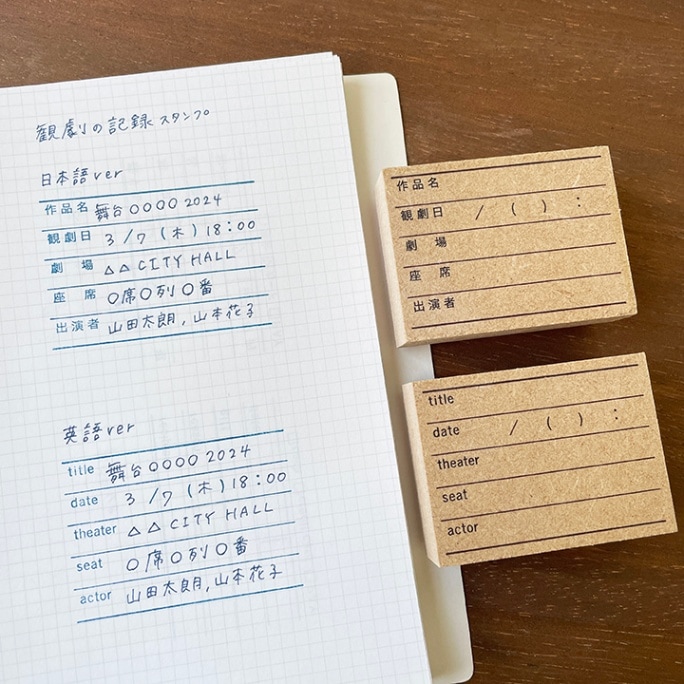 観劇の記録スタンプ
日本語ver
作品名 舞台〇〇〇〇 2024
観劇日 3 / 7 (木) 18:00
劇 場 △△ CITY HALL
座 席 〇席〇列〇番
出演者 山田太朗, 山本花子
英語ver
title 舞台〇〇〇〇 2024
date 3 / 7 (木) 18:00
theater △△ CITY HALL
seat 〇席〇列〇番
actor 山田太朗, 山本花子
作品名
観劇日 / ( ) :
劇 場
座 席
出演者
title
date / ( ) :
theater
seat
actor